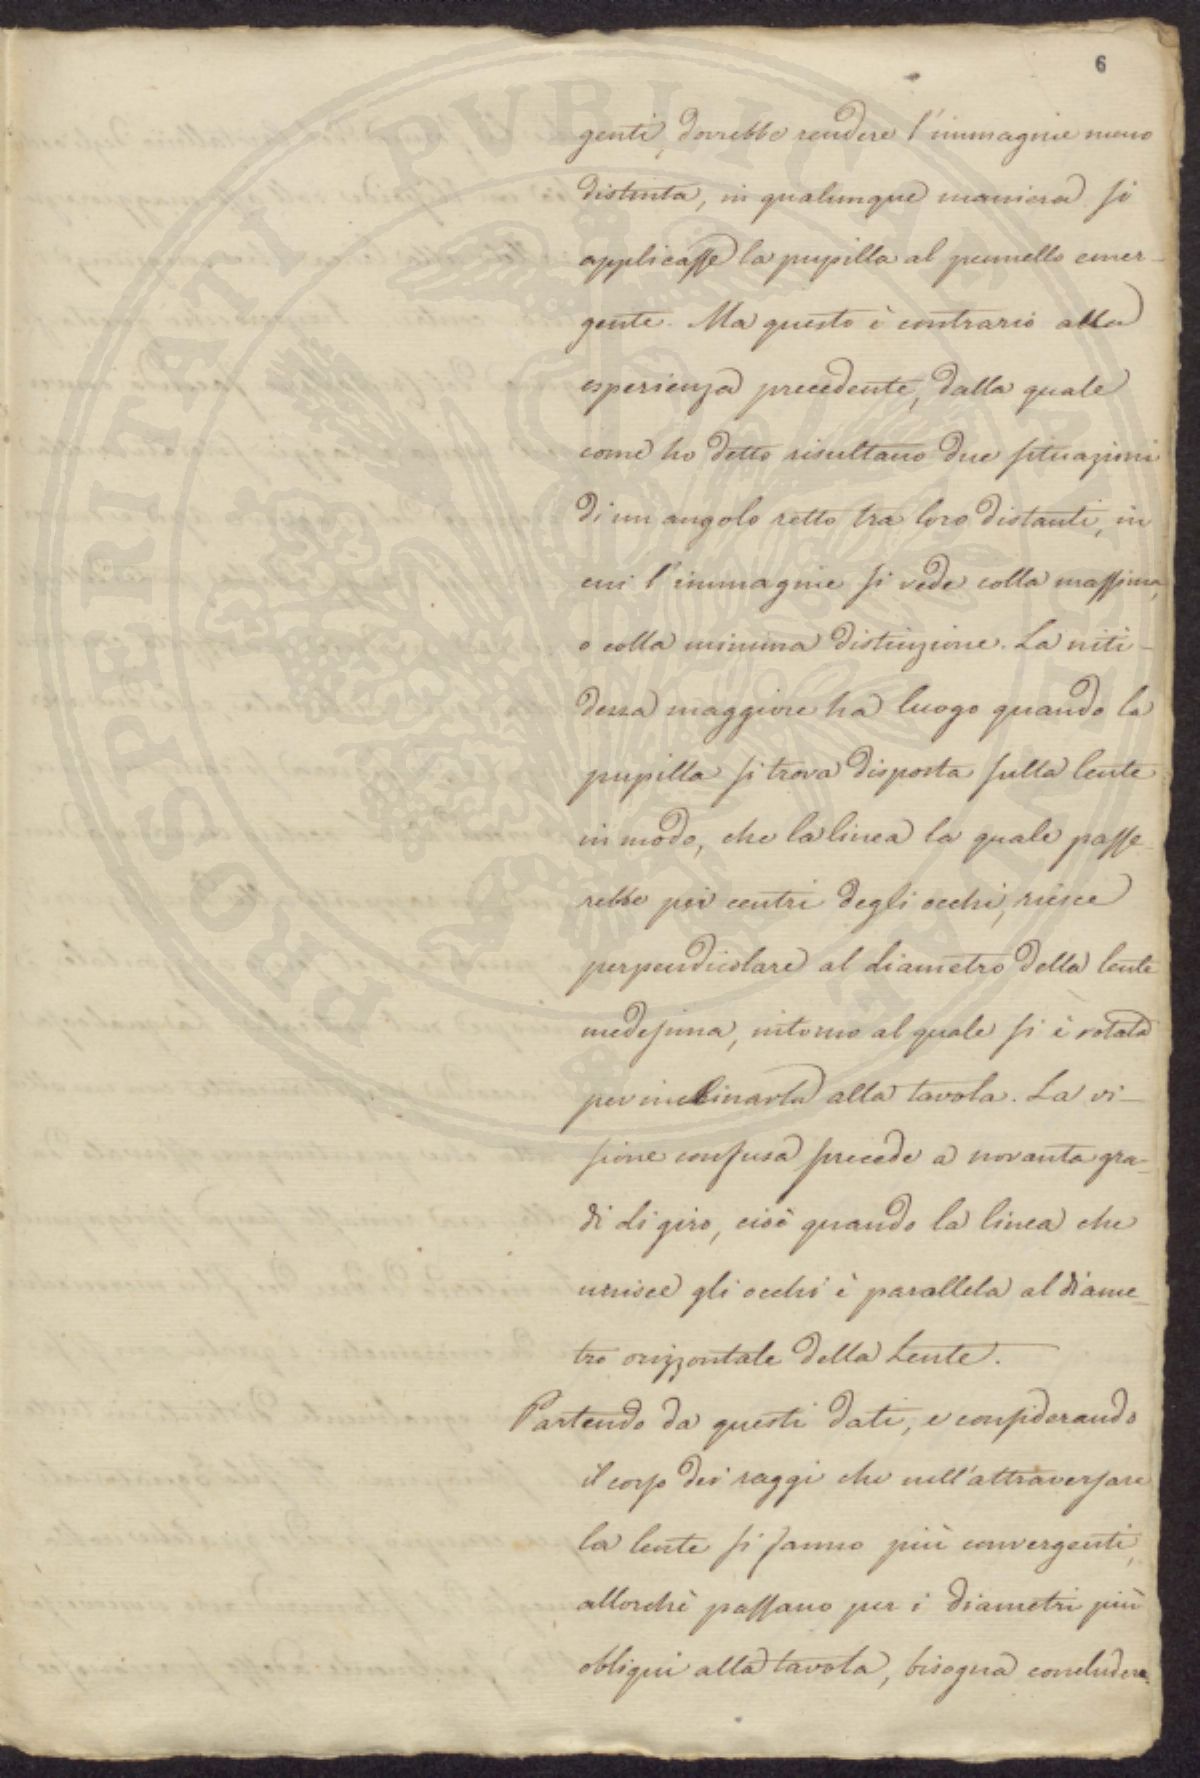 6
genti, dovrebbe rendere l'immagine meno
distinta, in qualunque maniera si
applicasse la pupilla al pennello emer-
gente. Ma questo è contrario alla
esperienza precedente, dalla quale
come ho detto risultano due situazioni
di un angolo retto tra loro distanti, in
cui l'immagine si vede colla massima,
o colla minima distinzione. La niti-
dezza maggiore ha luogo quando la
pupilla si trova disposta sulla lente
in modo, che la linea la quale passe-
rebbe pei centri degli occhi, riesce
perpendicolare al diametro della lente
medesima, intorno al quale si è rotata
per inclinarla alla tavola. La vi-
sione confusa succede a novanta gra-
di di giro, cioè quando la linea che
unisce gli occhi è parallela al diame-
tro orizzontale della Lente.
Partendo da questi dati, e considerando
il corpo dei raggi che nell'attraversare
la lente si fanno più convergenti,
allorchè passano per i diametri più
obliqui alla tavola, bisogna concludere
PROSPERITATI PVBLICAE